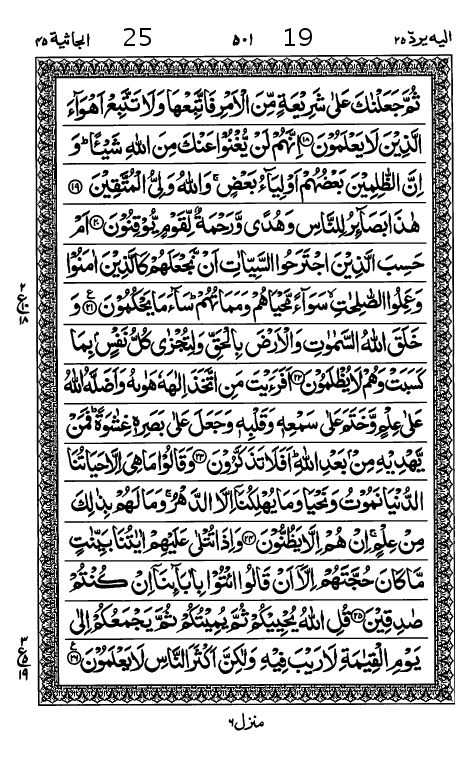 الیه یردّ ۲۵ 19 ۵۰۱ 25 الجاثیة ۴۵
ثُمَّ جَعَلْنٰكَ عَلٰى شَرِيْعَةٍ مِّنَ الْاَمْرِ فَاتَّبِعْهَا وَلَا تَتَّبِعْ اَهْوَآءَ
الَّذِيْنَ لَا يَعْلَمُوْنَ ۱۸ اِنَّهُمْ لَنْ يُّغْنُوْا عَنْكَ مِنَ اللّٰهِ شَيْـًٔا ؕ وَ
اِنَّ الظّٰلِمِيْنَ بَعْضُهُمْ اَوْلِيَآءُ بَعْضٍ ۚ وَاللّٰهُ وَلِيُّ الْمُتَّقِيْنَ ۱۹
هٰذَا بَصَآىِٕرُ لِلنَّاسِ وَهُدًى وَّرَحْمَةٌ لِّقَوْمٍ يُّوْقِنُوْنَ ۲۰ اَمْ
حَسِبَ الَّذِيْنَ اجْتَرَحُوا السَّيِّاٰتِ اَنْ نَّجْعَلَهُمْ كَالَّذِيْنَ اٰمَنُوْا
وَعَمِلُوا الصّٰلِحٰتِ ۙ سَوَآءً مَّحْيَاهُمْ وَمَمَاتُهُمْ ؕ سَآءَ مَا يَحْكُمُوْنَ ۲۱ ع وَ
۲ ع ۱۸
خَلَقَ اللّٰهُ السَّمٰوٰتِ وَالْاَرْضَ بِالْحَقِّ وَلِتُجْزٰى كُلُّ نَفْسٍۭ بِمَا
كَسَبَتْ وَهُمْ لَا يُظْلَمُوْنَ ۲۲ اَفَرَءَيْتَ مَنِ اتَّخَذَ اِلٰهَهٗ هَوٰىهُ وَاَضَلَّهُ اللّٰهُ
عَلٰى عِلْمٍ وَّخَتَمَ عَلٰى سَمْعِهٖ وَقَلْبِهٖ وَجَعَلَ عَلٰى بَصَرِهٖ غِشٰوَةً ؕ فَمَنْ
يَّهْدِيْهِ مِنْۢ بَعْدِ اللّٰهِ ؕ اَفَلَا تَذَكَّرُوْنَ ۲۳ وَقَالُوْا مَا هِيَ اِلَّا حَيَاتُنَا
الدُّنْيَا نَمُوْتُ وَنَحْيَا وَمَا يُهْلِكُنَاۤ اِلَّا الدَّهْرُ ۚ وَمَا لَهُمْ بِذٰلِكَ
مِنْ عِلْمٍ ۚ اِنْ هُمْ اِلَّا يَظُنُّوْنَ ۲۴ وَاِذَا تُتْلٰى عَلَيْهِمْ اٰيٰتُنَا بَيِّنٰتٍ
مَّا كَانَ حُجَّتَهُمْ اِلَّاۤ اَنْ قَالُوا ائْتُوْا بِاٰبَآىِٕنَاۤ اِنْ كُنْتُمْ
صٰدِقِيْنَ ۲۵ قُلِ اللّٰهُ يُحْيِيْكُمْ ثُمَّ يُمِيْتُكُمْ ثُمَّ يَجْمَعُكُمْ اِلٰى
يَوْمِ الْقِيٰمَةِ لَا رَيْبَ فِيْهِ وَلٰكِنَّ اَكْثَرَ النَّاسِ لَا يَعْلَمُوْنَ ۲۶ ع
۳ ع ۵ ۱۹
منزل ۶